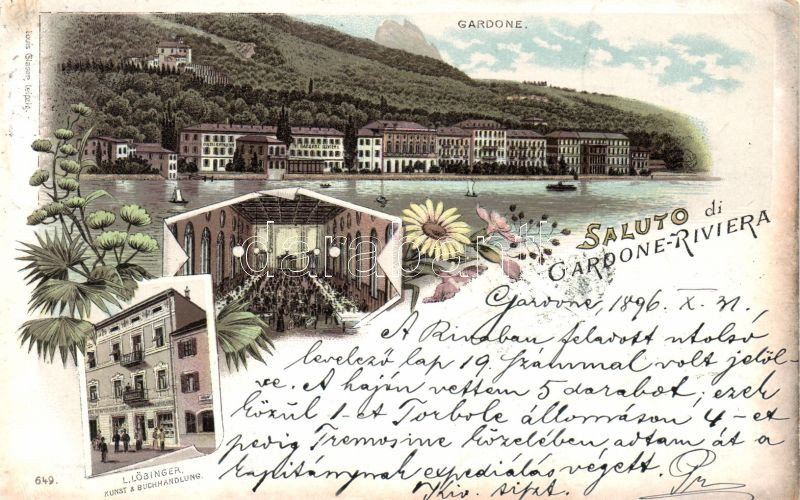 GARDONE.
Louis Glaser, Leipzig.
SALUTO di
GARDONE-RIVIERA
darabanth
Gardone, 1896. X. 31.
A Rivaban feladott utolsó
levelező lap 19. számmal volt jelöl-
ve. A haján vettem 5 darabot, ezek
közül 1-et Torbole állomáson 4-et
pedig Tremosine közelében adtam át a
kapitánynak expediálás végett.
Kiv. tiszt.
649.
L. LÖBINGER,
KUNST & BUCHHANDLUNG.